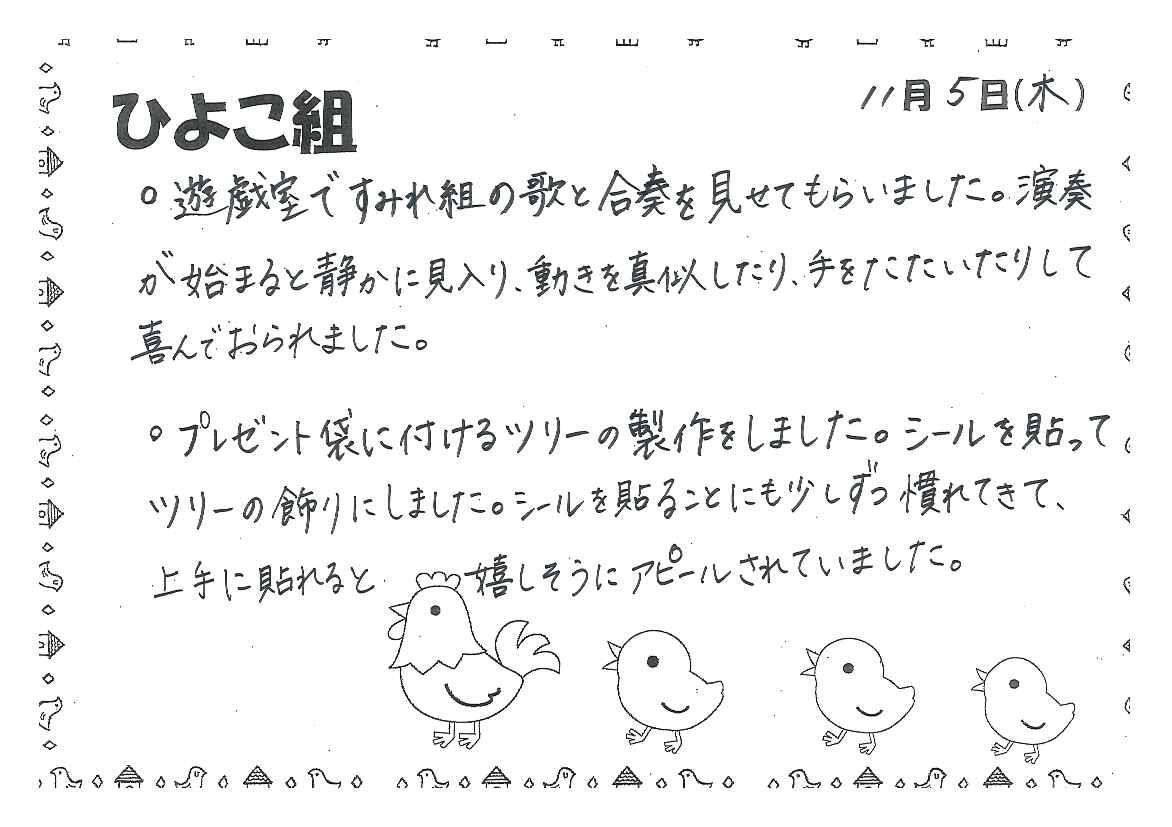 ひよこ組
11月5日(木)
○遊戯室ですみれ組の歌と合奏を見せてもらいました。演奏
が始まると静かに見入り、動きを真似したり、手をたたいたりして
喜んでおられました。
○プレゼント袋に付けるツリーの製作をしました。シールを貼って
ツリーの飾りにしました。シールを貼ることにも少しずつ慣れてきて、
上手に貼れると 嬉しそうにアピールされていました。